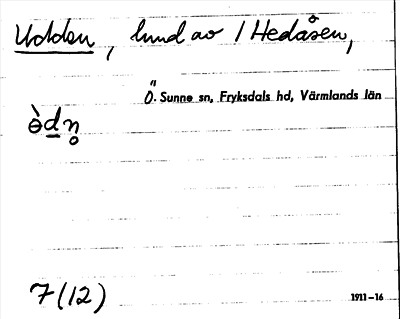 Udden, lund av 1 Hedåsen,
Ö. Sunne sn, Fryksdals hd, Värmlands län
ɵ̀dn̥
7(12)
1911–16